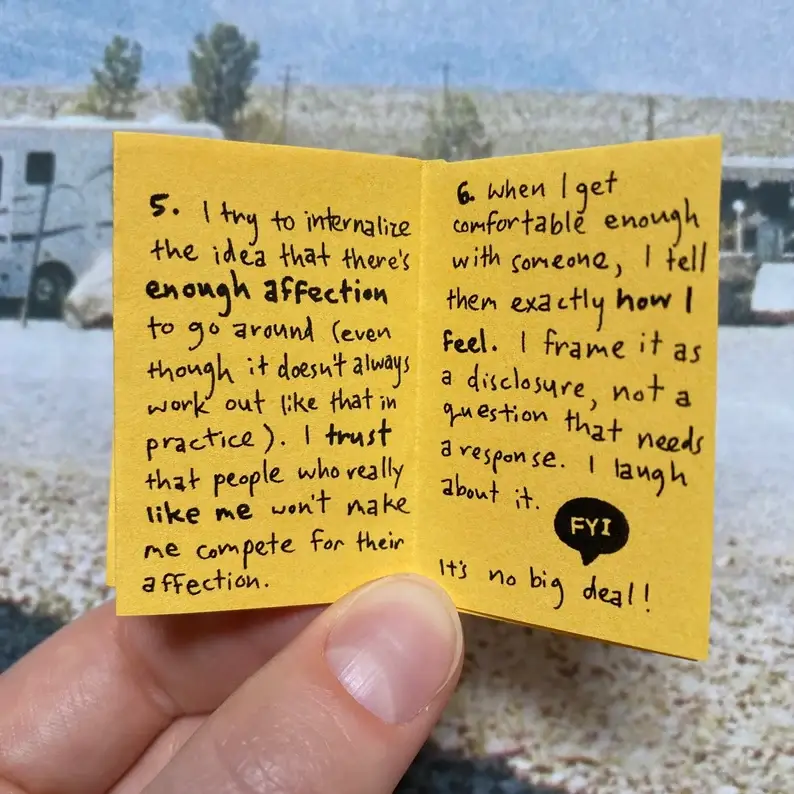 5. I try to internalize
the idea that there's
enough affection
to go around (even
though it doesn't always
work out like that in
practice). I trust
that people who really
like me won't make
me compete for their
affection.
6. When I get
comfortable enough
with someone, I tell
them exactly how I
feel. I frame it as
a disclosure, not a
question that needs
a response. I laugh
about it.
FYI
It's no big deal!